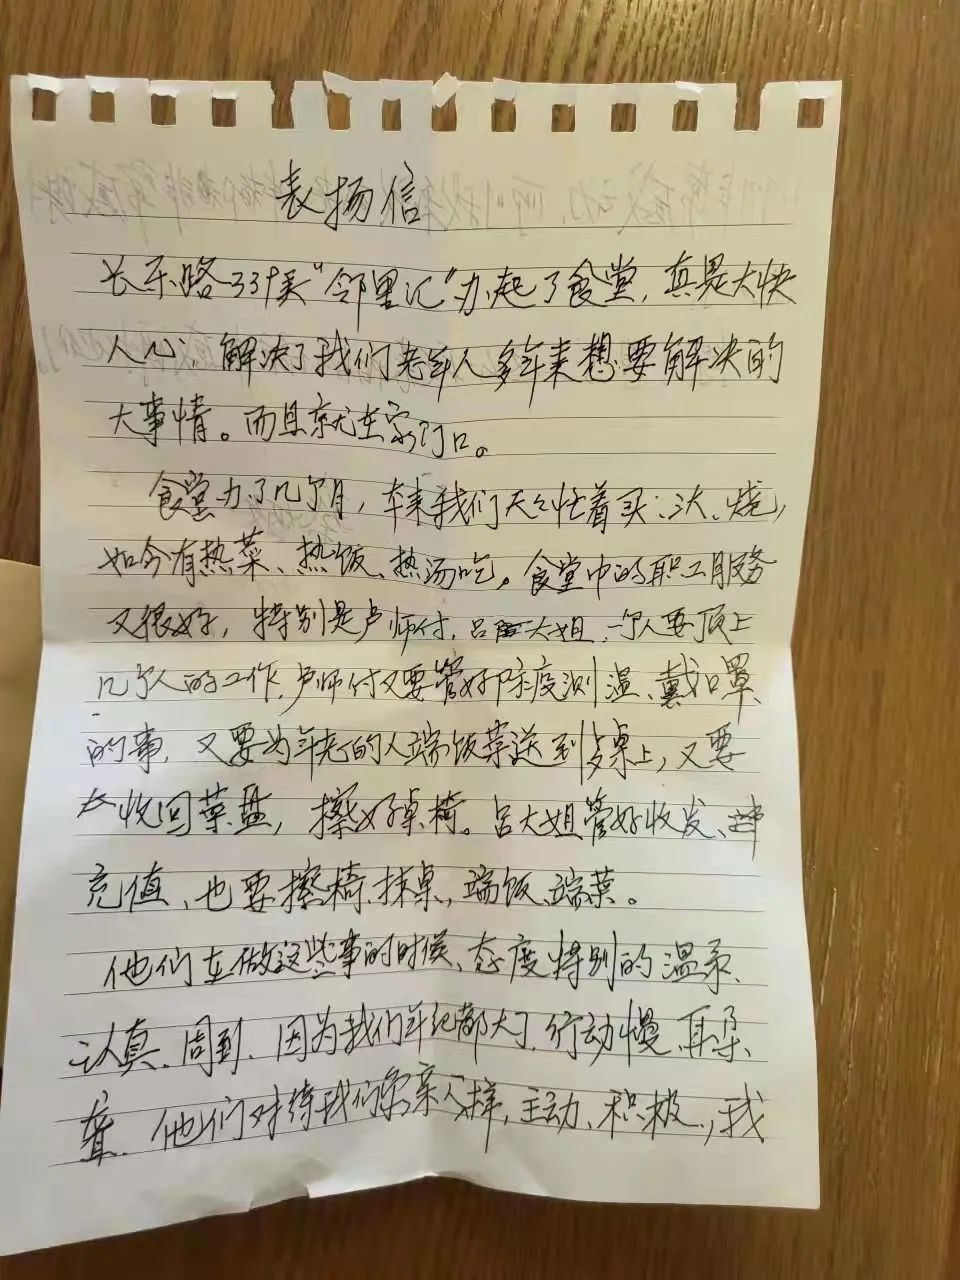 表扬信
长乐路339弄“邻里记”办起了食堂，真是大快
人心，解决了我们老年人多年来想要解决的
大事情。而且就在家门口。
食堂办了几个月，本来我们天天忙着买、汏、烧，
如今有热菜、热饭、热汤吃。食堂中的职工服务
又很好，特别是卢师付，吕大姐，一个人要顶上
几个人的工作，卢师付又要管好防疫测温、戴口罩、
的事，又要为年老的人端饭菜送到桌上，又要
收回菜盘，擦好桌椅。吕大姐管好收发、
充值、也要擦椅、抹桌，端饭、端菜。
他们在做这些事的时候、态度特别的温柔、
认真、周到、因为我们年纪都大了，行动慢、耳朵
聋、他们对待我们像亲人一样，主动、积极，我